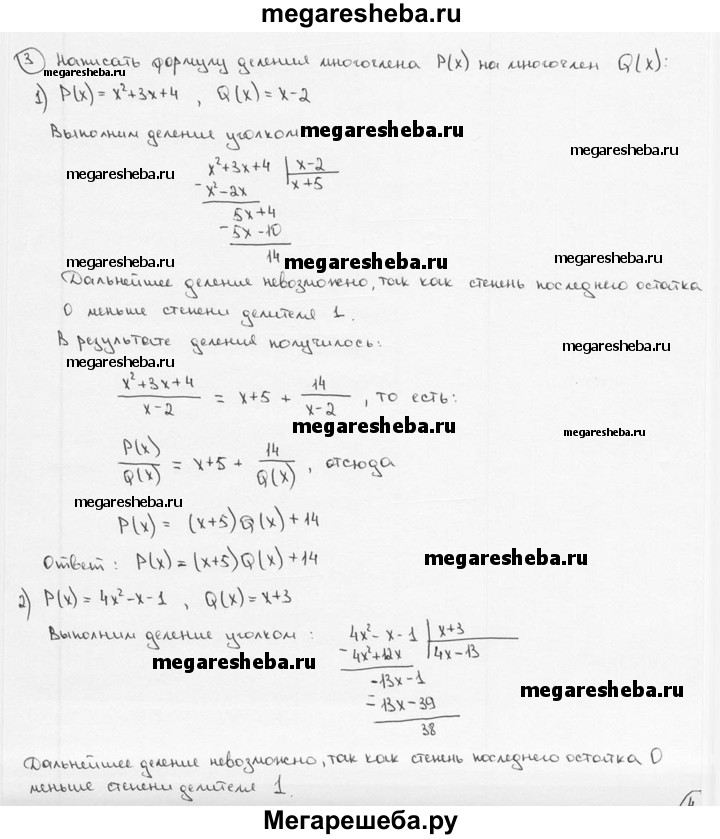 megaresheba.ru
3 Написать формулу деления многочлена P(x) на многочлен Q(x):
megaresheba.ru
1) P(x) = x²+3x+4 , Q(x) = x-2
Выполним деление уголком megaresheba.ru
megaresheba.ru
x²+3x+4 | x-2
megaresheba.ru
- x²-2x | x+5
5x+4
- 5x-10
14
megaresheba.ru
megaresheba.ru
Дальнейшее деление невозможно, так как степень последнего остатка
0 меньше степени делителя 1.
В результате деления получилось:
megaresheba.ru
megaresheba.ru
(x²+3x+4)/(x-2) = x+5 + 14/(x-2) , то есть:
megaresheba.ru
megaresheba.ru
P(x)/Q(x) = x+5 + 14/Q(x) , отсюда
megaresheba.ru
P(x) = (x+5)Q(x)+14
Ответ: P(x) = (x+5)Q(x)+14
megaresheba.ru
2) P(x) = 4x²-x-1 , Q(x) = x+3
Выполним деление уголком:
4x²-x-1 | x+3
- 4x²+12x | 4x-13
megaresheba.ru
-13x-1
megaresheba.ru
- -13x-39
38
Дальнейшее деление невозможно, так как степень последнего остатка 0
меньше степени делителя 1.
Мегарешеба.ру